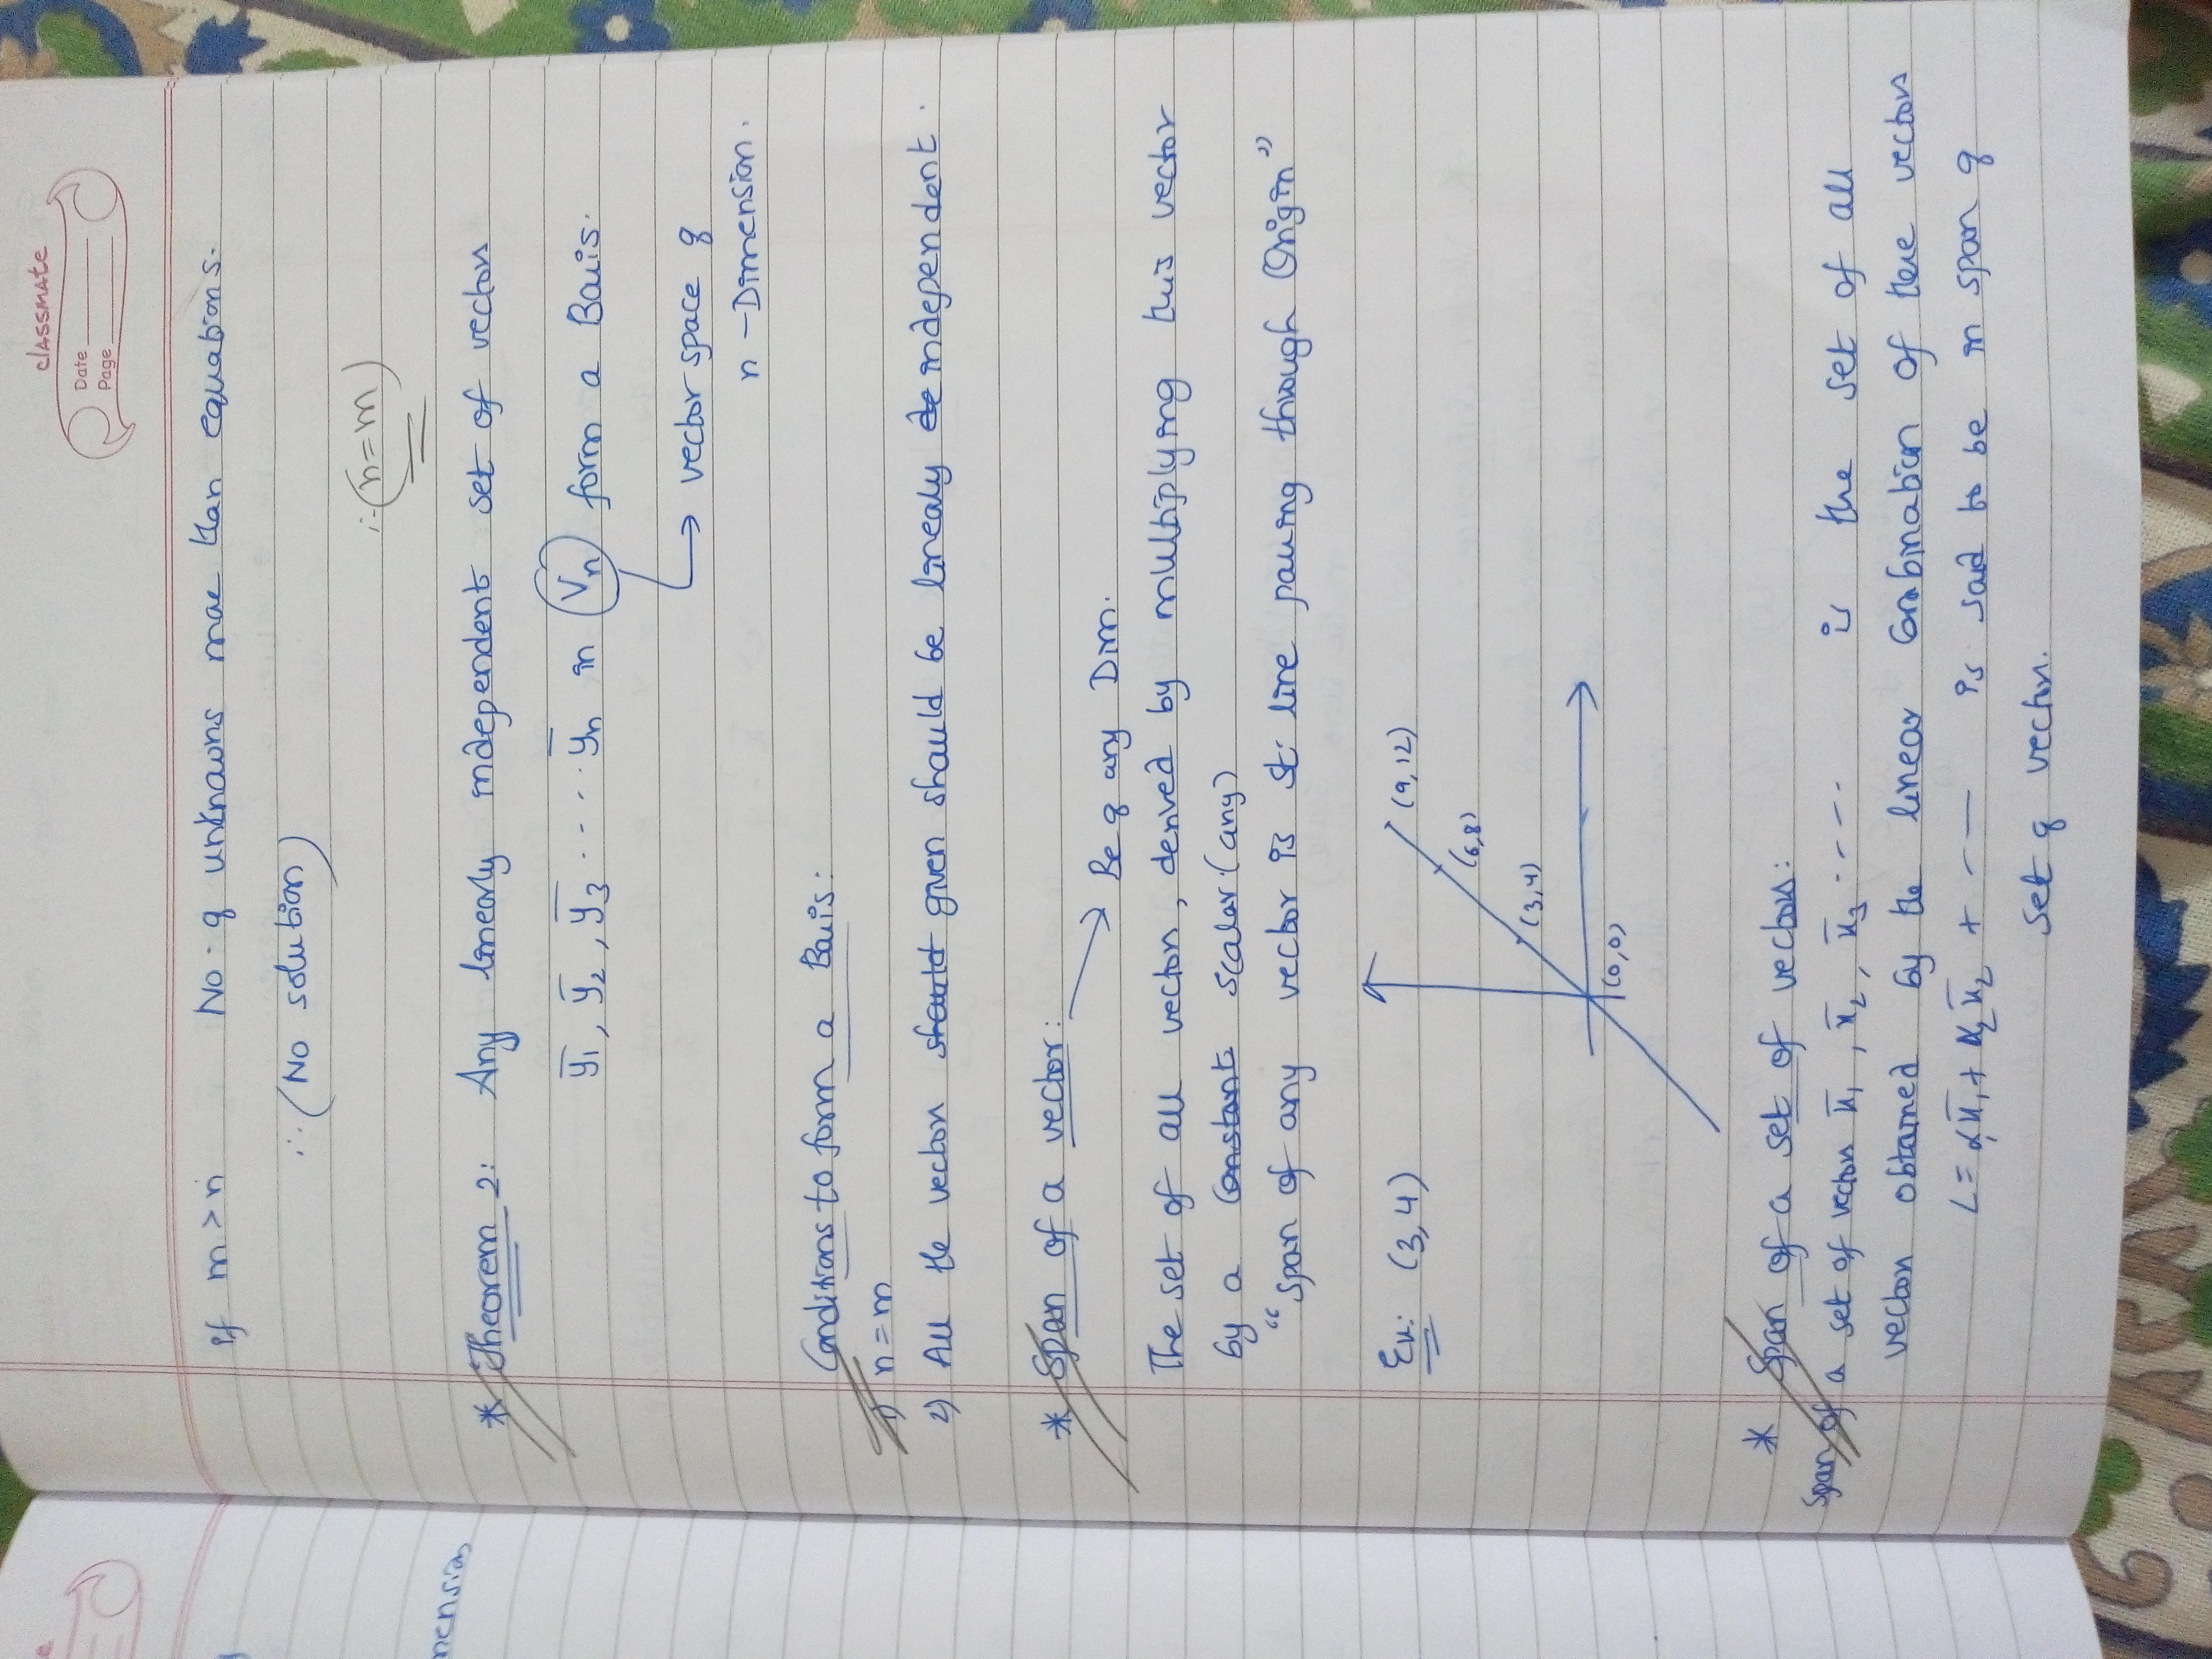 classmate
Date
Page
If m > n No. of unknowns more than equations.
∴ (No solution)
∴ (n = m)
* Theorem 2: Any linearly independent set of vectors
y̅1, y̅2, y̅3 .... y̅n in Vn form a Basis.
→ vector space of
n - Dimension.
Conditions to form a Basis:
1) n = m
2) All the vectors should given should be linearly de independent.
* Span of a vector: → Be of any Dim.
The set of all vectors, derived by multiplying this vector
by a constant scalar (any)
"Span of any vector is st. line passing through Origin"
Ex: (3,4)
(9,12)
(6,8)
(3,4)
(0,0)
* Span of a set of vectors:
Span of a set of vectors x̅1, x̅2, x̅3 .... is the set of all
vectors obtained by the linear combination of these vectors
L = α1x̅1 + α2x̅2 + --- is said to be in span of
set of vectors.
mension